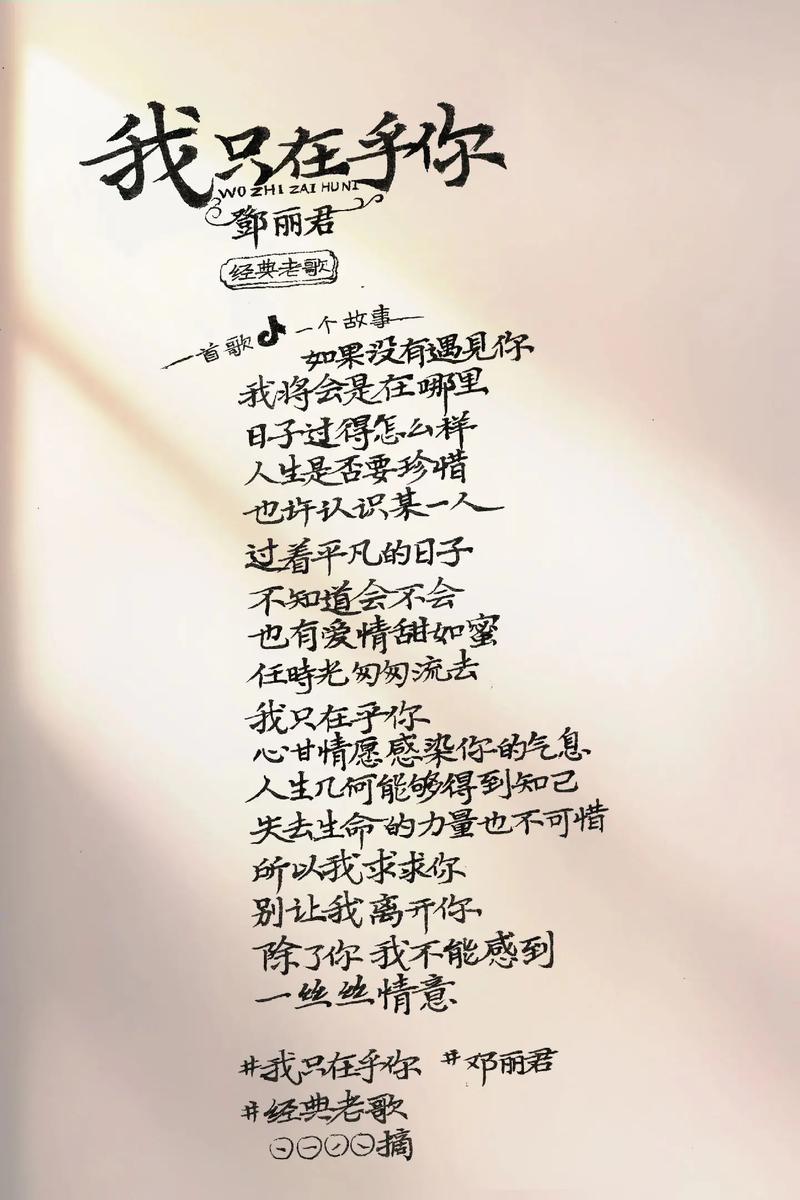 我只在乎你
WO ZHI ZAI HU NI
鄧丽君
经典老歌
一首歌 一个故事
如果没有遇見你
我将会是在哪里
日子过得怎么样
人生是否要珍惜
也许认识某一人
过着平凡的日子
不知道会不会
也有爱情甜如蜜
任時光匆匆流去
我只在乎你
心甘情愿感染你的气息
人生几何能够得到知己
失去生命的力量也不可惜
所以我求求你
别让我离开你
除了你 我不能感到
一丝丝情意
#我只在乎你 #邓丽君
#经典老歌
摘